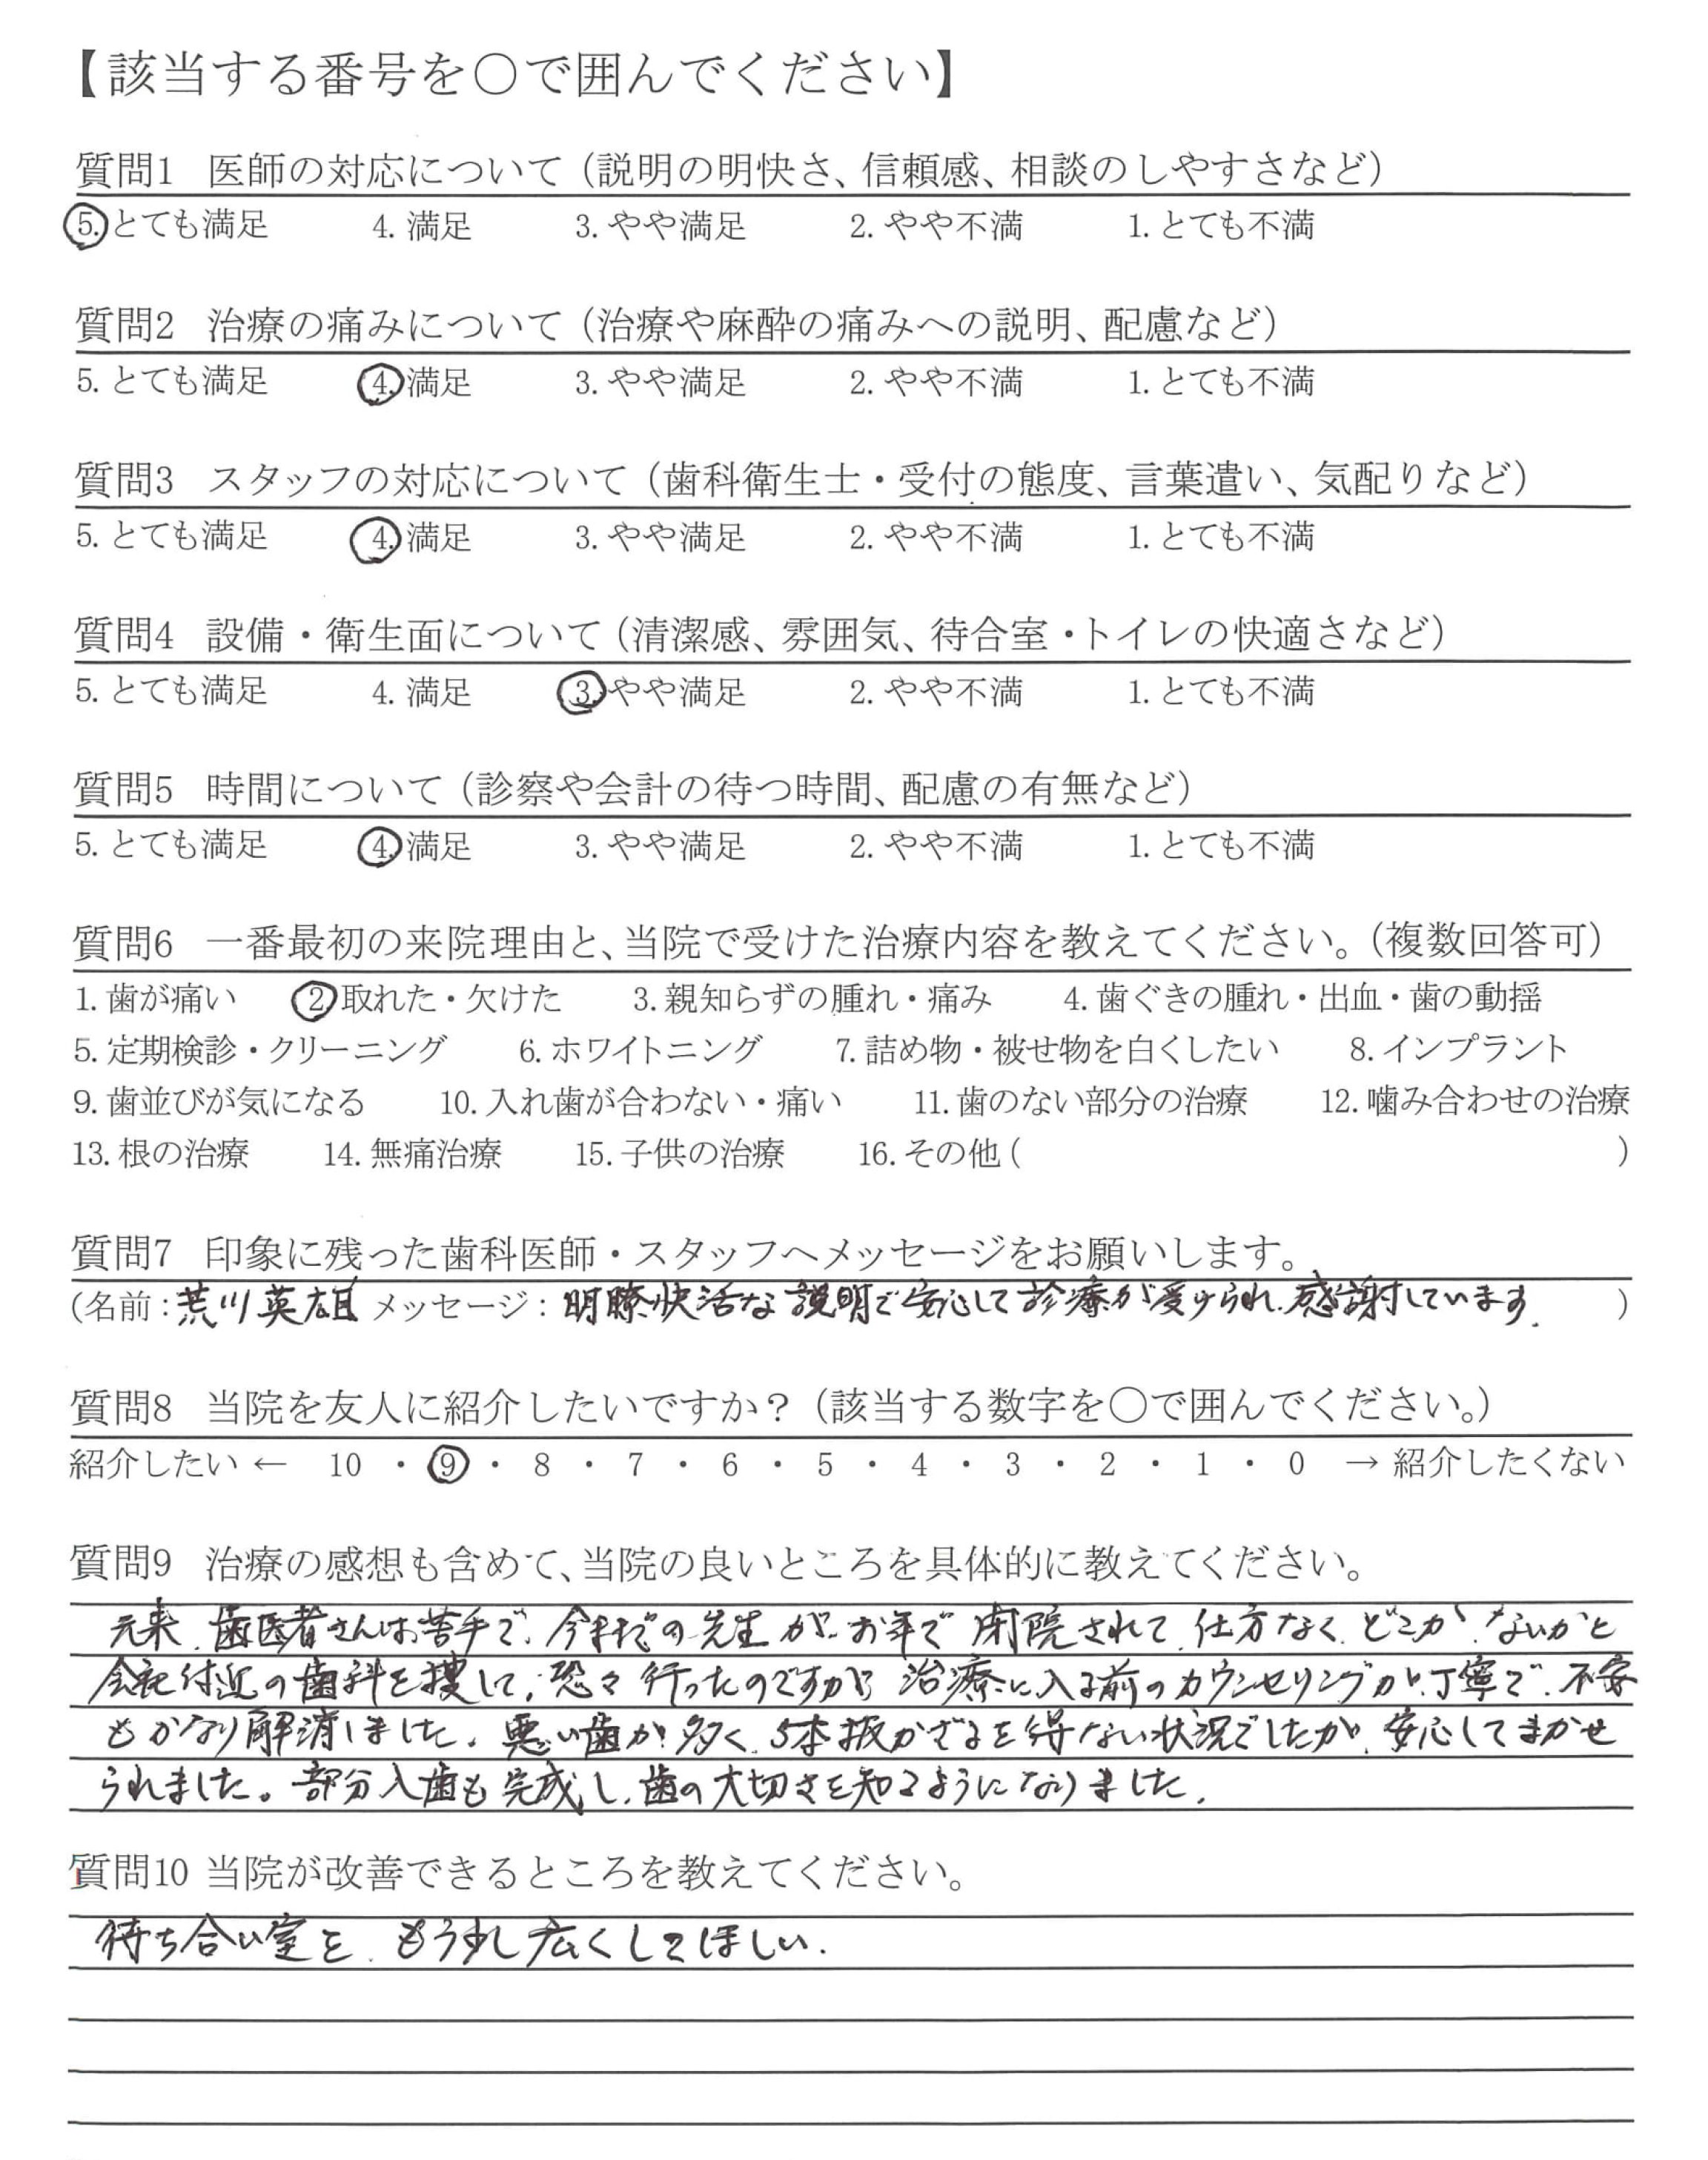 【該当する番号を○で囲んでください】
質問1 医師の対応について（説明の明快さ、信頼感、相談のしやすさなど）
5. とても満足 4. 満足 3. やや満足 2. やや不満 1. とても不満
質問2 治療の痛みについて（治療や麻酔の痛みへの説明、配慮など）
5. とても満足 4. 満足 3. やや満足 2. やや不満 1. とても不満
質問3 スタッフの対応について（歯科衛生士・受付の態度、言葉遣い、気配りなど）
5. とても満足 4. 満足 3. やや満足 2. やや不満 1. とても不満
質問4 設備・衛生面について（清潔感、雰囲気、待合室・トイレの快適さなど）
5. とても満足 4. 満足 3. やや満足 2. やや不満 1. とても不満
質問5 時間について（診察や会計の待つ時間、配慮の有無など）
5. とても満足 4. 満足 3. やや満足 2. やや不満 1. とても不満
質問6 一番最初の来院理由と、当院で受けた治療内容を教えてください。（複数回答可）
1. 歯が痛い 2 取れた・欠けた 3. 親知らずの腫れ・痛み 4. 歯ぐきの腫れ・出血・歯の動揺
5. 定期検診・クリーニング 6. ホワイトニング 7. 詰め物・被せ物を白くしたい 8. インプラント
9. 歯並びが気になる 10. 入れ歯が合わない・痛い 11. 歯のない部分の治療 12. 噛み合わせの治療
13. 根の治療 14. 無痛治療 15. 子供の治療 16. その他 ( )
質問7 印象に残った歯科医師・スタッフへメッセージをお願いします。
（名前：荒川英雄 メッセージ：明瞭快活な説明で安心して診療が受けられ、感謝しています。）
質問8 当院を友人に紹介したいですか？（該当する数字を○で囲んでください。）
紹介したい ← 10 ・ 9 ・ 8 ・ 7 ・ 6 ・ 5 ・ 4 ・ 3 ・ 2 ・ 1 ・ 0 → 紹介したくない
質問9 治療の感想も含めて、当院の良いところを具体的に教えてください。
元来、歯医者さんは苦手で、今までの先生が、お年で閉院されて、仕方なく、どこか、ないかと
会社付近の歯科を捜して、恐々行ったのですが、治療に入る前のカウンセリングが、丁寧で、不安
もかなり解消しました。悪い歯が多く、5本抜かざるを得ない状況でしたが、安心してまかせ
られました。部分入歯も完成し、歯の大切さを知るようになりました。
質問10 当院が改善できるところを教えてください。
待ち合い室を、もう少し広くしてほしい。